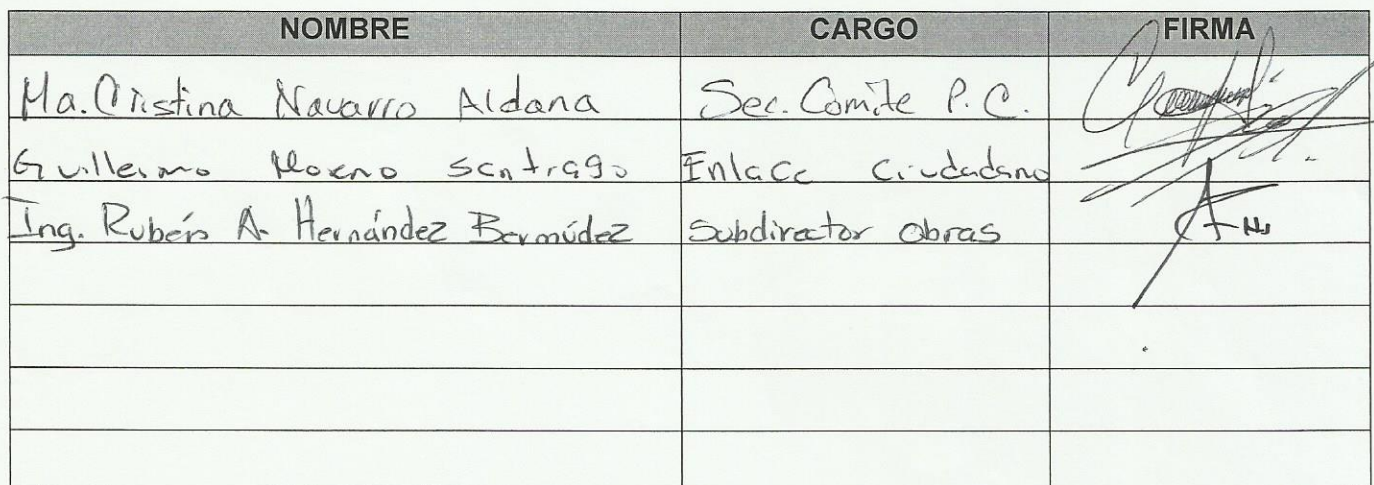 NOMBRE CARGO FIRMA
Ma. Cristina Navarro Aldana Sec. Comite P. C.
Guillermo Moreno Santiago Enlace Ciudadano
Ing. Rubén A. Hernández Bermúdez Subdirector Obras